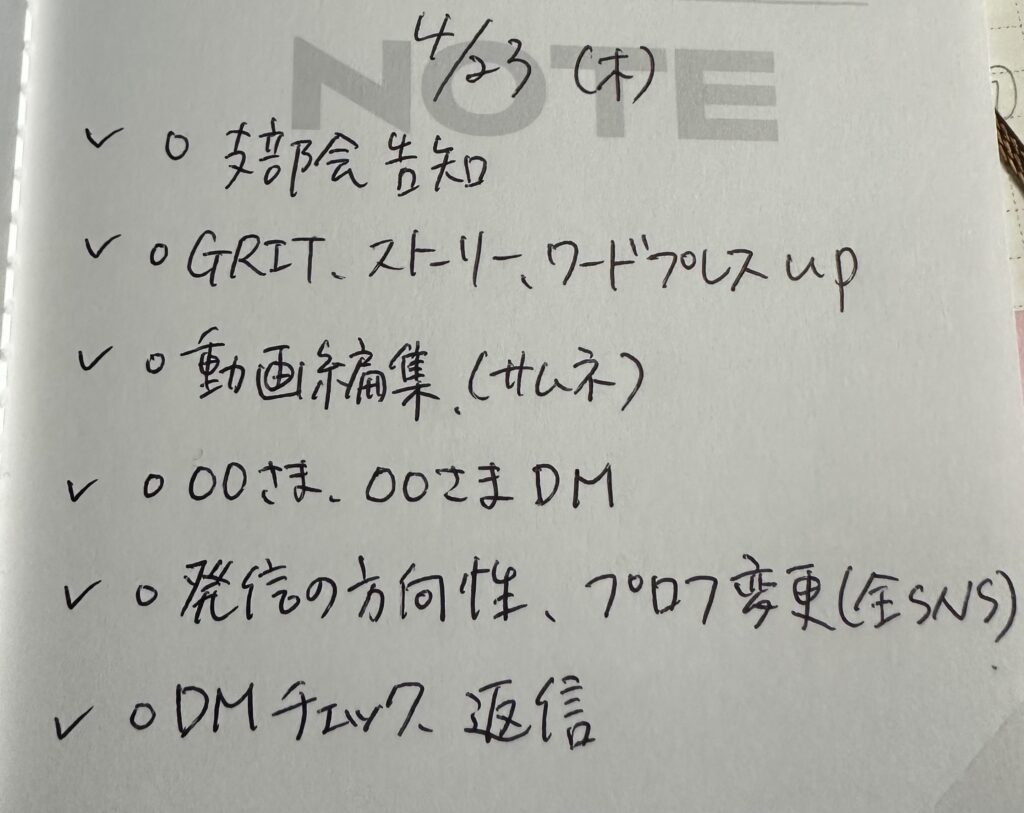 NOTE
4/23 (木)
✓ ○ 支部会告知
✓ ○ GRIT、ストーリー、ワードプレスup
✓ ○ 動画編集、(サムネ)
✓ ○ 〇〇さま、〇〇さまDM
✓ ○ 発信の方向性、プロフ変更(全SNS)
✓ ○ DMチェック、返信